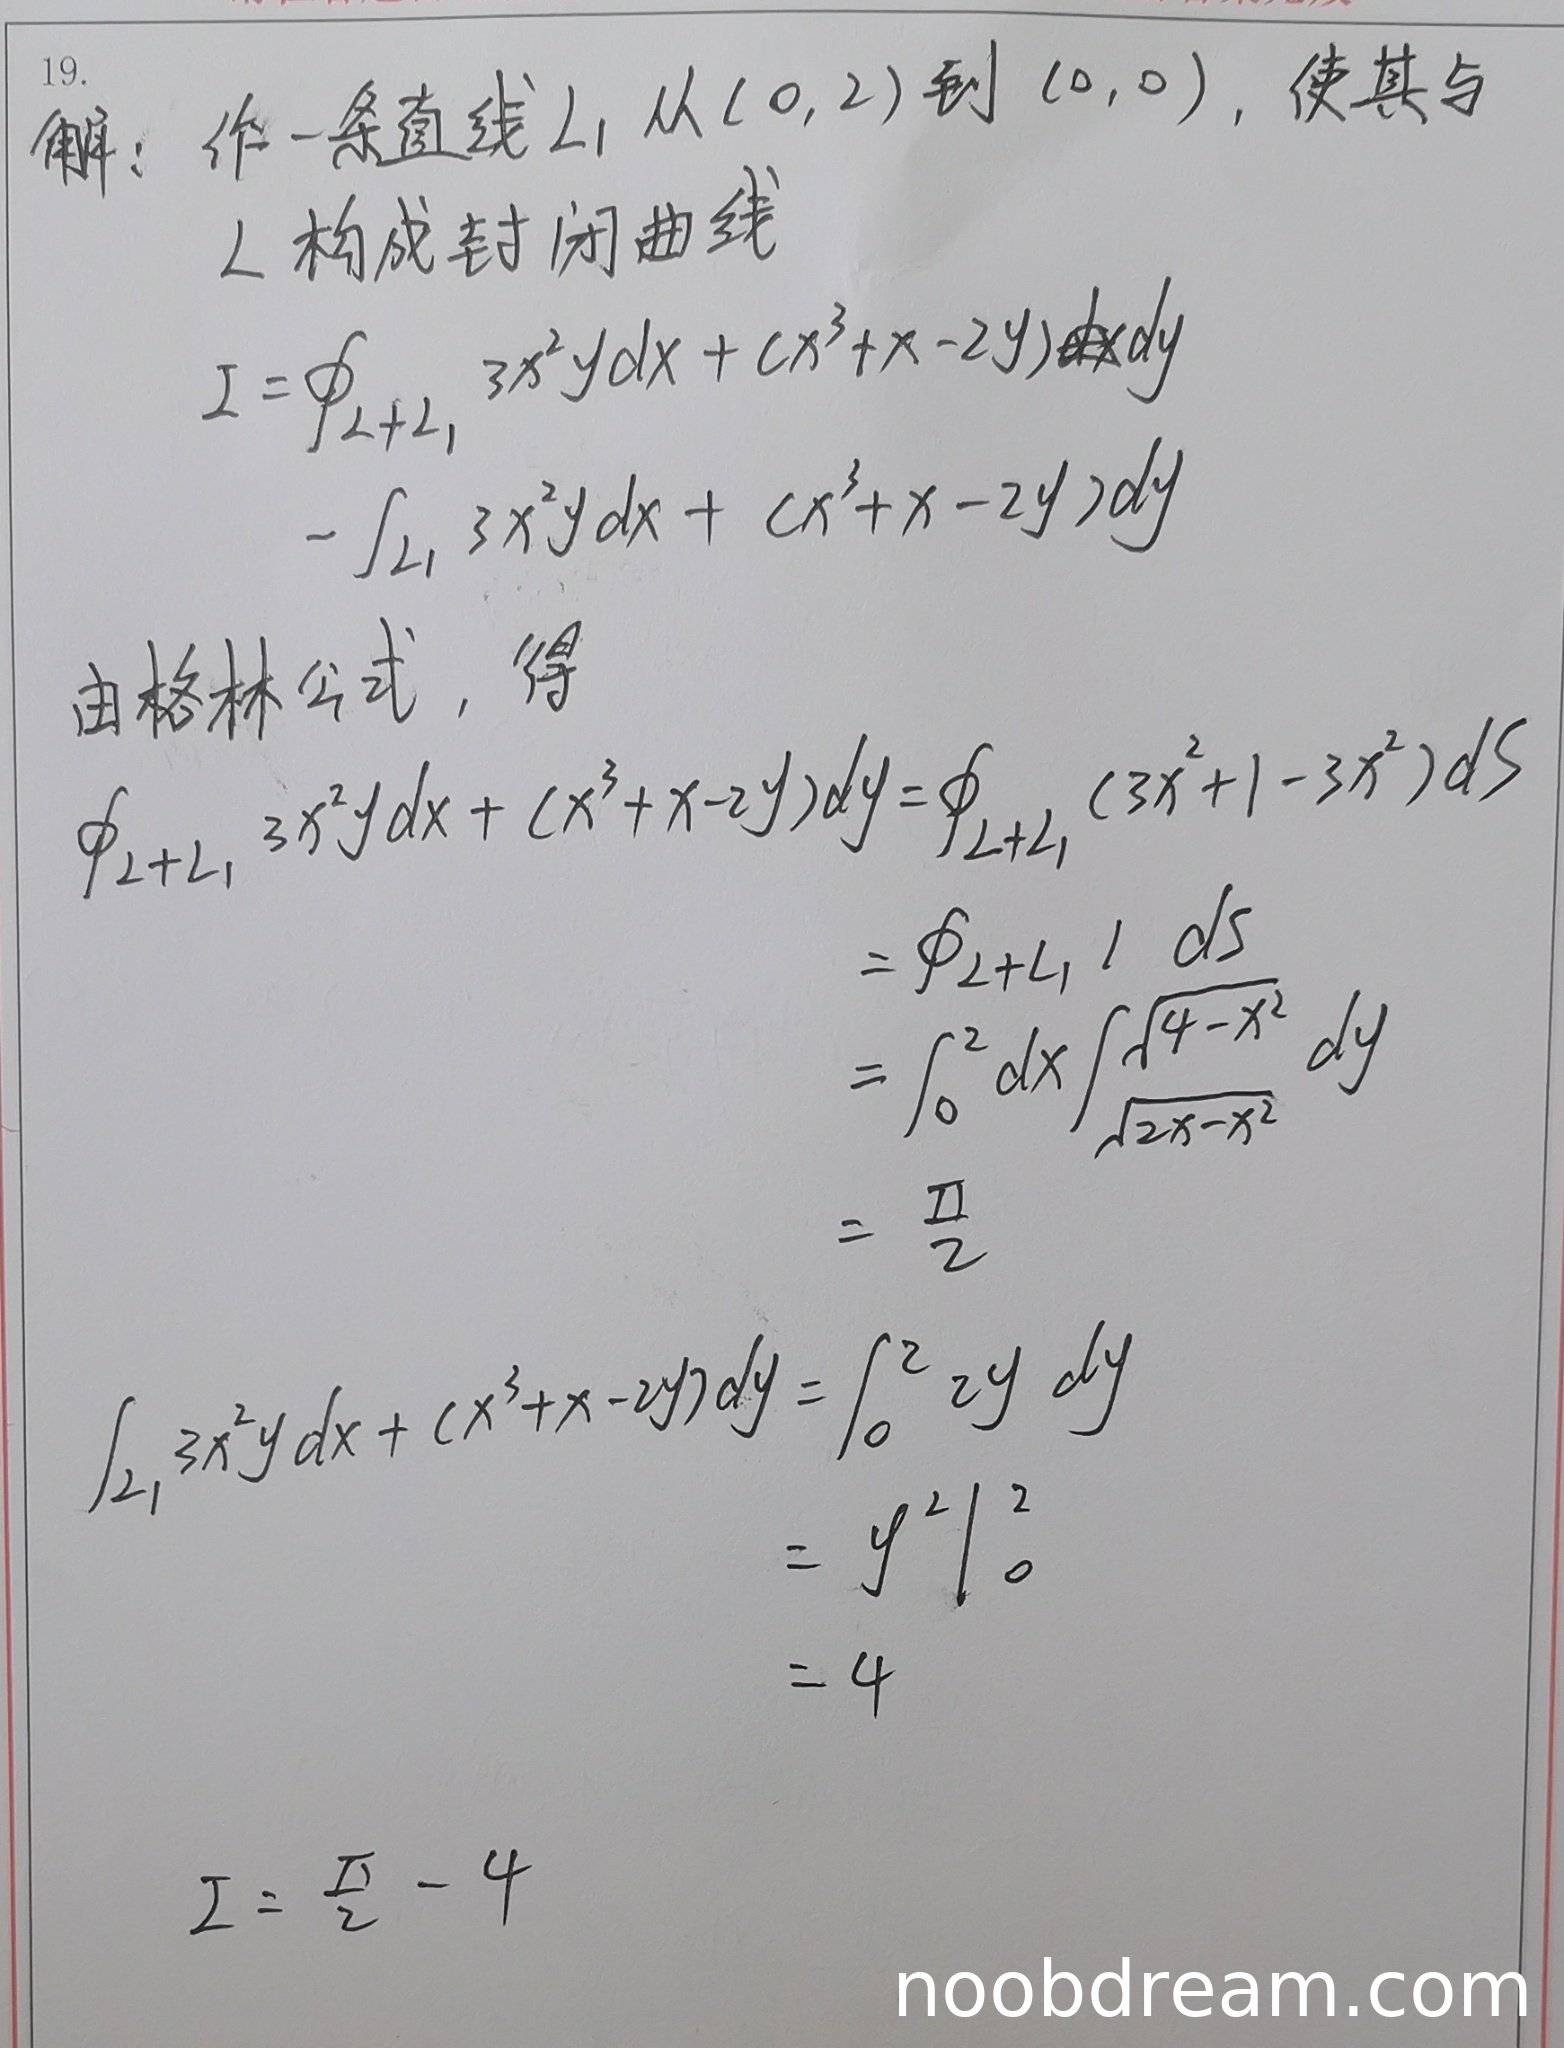 19.
解：作一条直线L₁从(0,2)到(0,0)，使其与
L构成封闭曲线
I=∮_{L+L₁} 3x²ydx+(x³+x-2y)dy
-∫_{L₁} 3x²ydx+(x³+x-2y)dy
由格林公式，得
∮_{L+L₁} 3x²ydx+(x³+x-2y)dy=∮_{L+L₁}(3x²+1-3x²)dS
=∮_{L+L₁} 1 dS
=∫₀² dx∫_{√(2x-x²)}^{√(4-x²)} dy
=π/2
∫_{L₁} 3x²ydx+(x³+x-2y)dy=∫₀² 2y dy
=y²|₀²
=4
I=π/2-4
noobdream.com